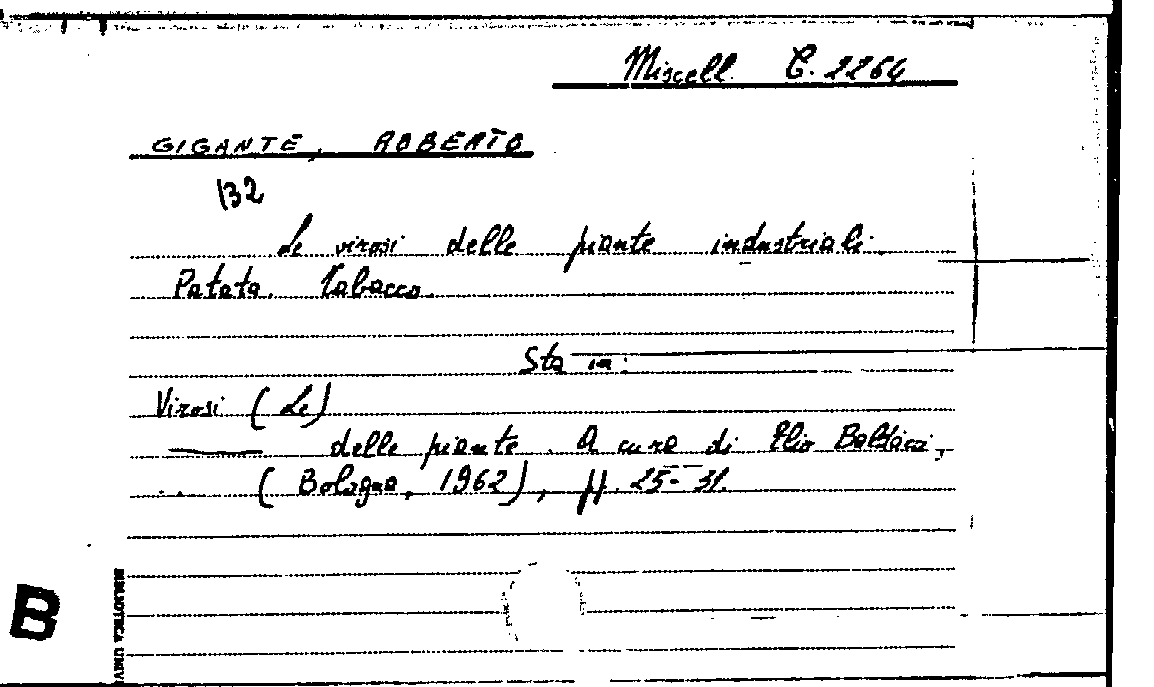 Miscell. C. 2264
GIGANTE, ROBERTO
132
Le virosi delle piante industriali.
Patata. Tabacco.
Sta in:
Virosi (Le)
delle piante. A cura di Elio Baldacci,
(Bologna, 1962), pp. 25-31.
B
BIBLIOTECA UNIV